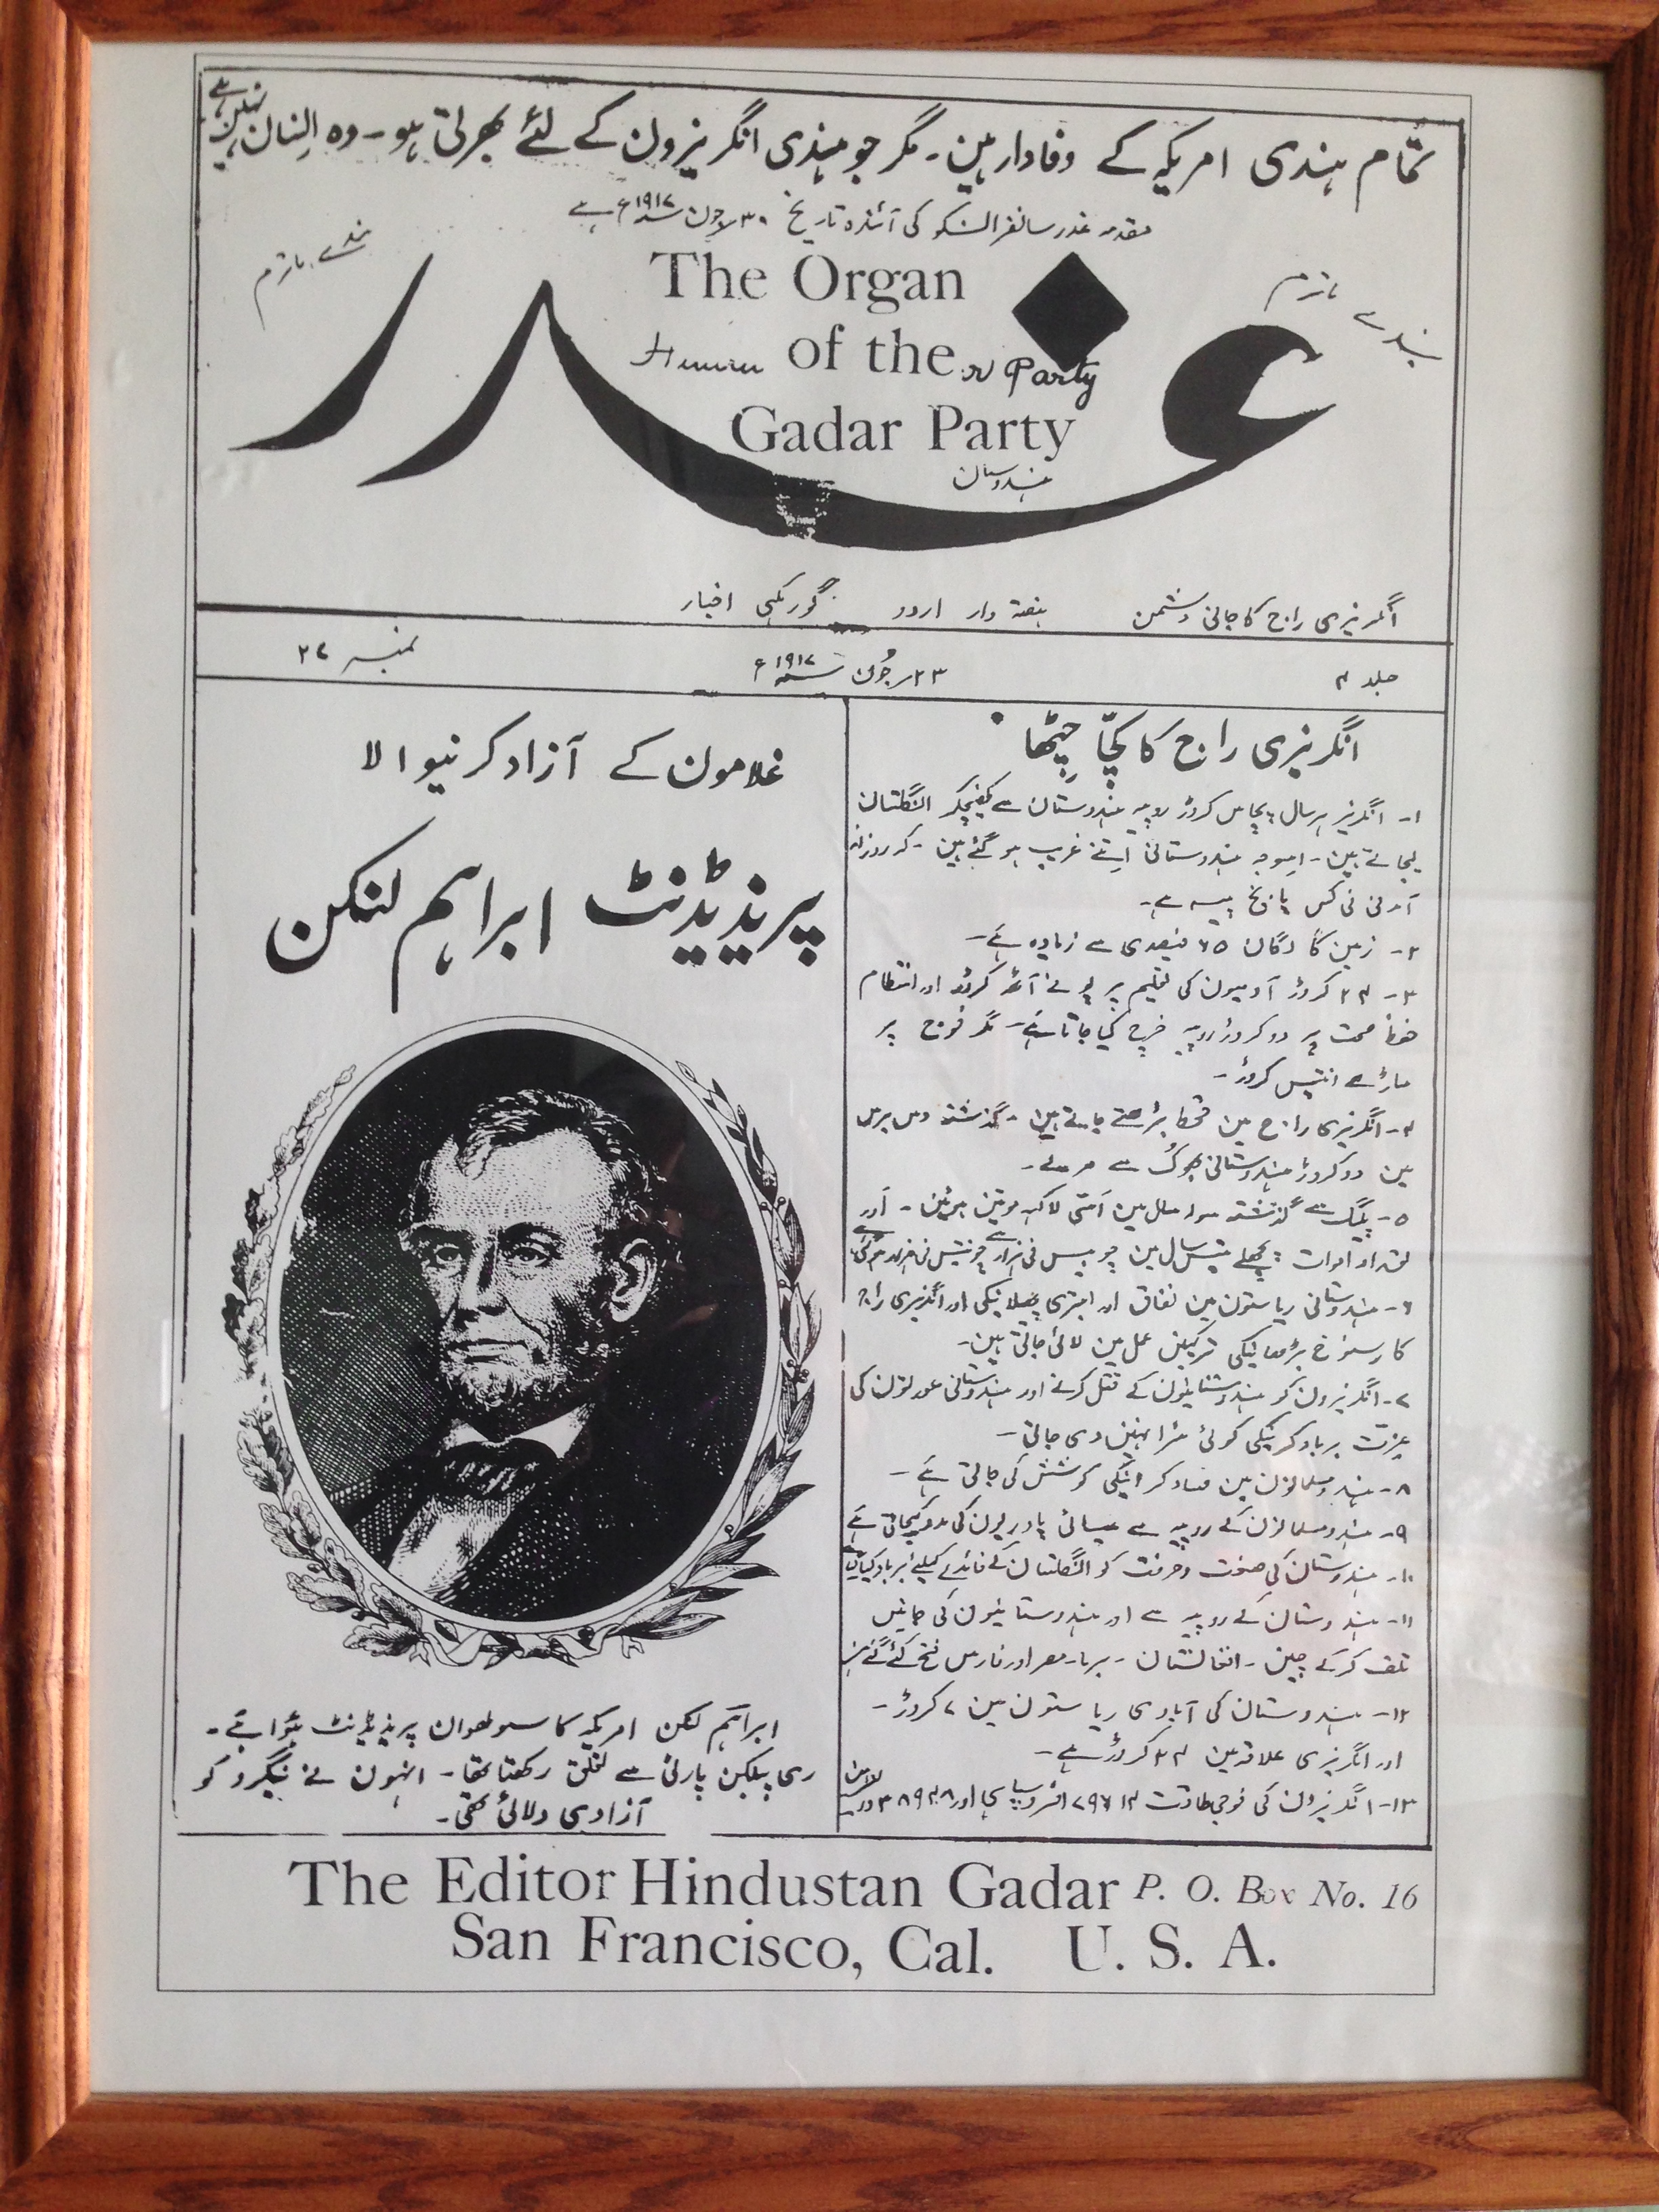 تمام ہندی امریکہ کے وفادار ہین۔ مگر جو ہندی انگریزون کے لئے بھرتی ہو۔ وہ انسان نہین ہے
مقدمہ غدر سانفرانسسکو کی آئندہ تاریخ ۳۰ جون سنہ ۱۹۱۷ء ہے
بندے ماترم
بندے ماترم
غدر
The Organ
of the
Party
Gadar Party
ہندوستان
انگریزی راج کا جانی دشمن
ہفتہ وار اردو گورمکھی اخبار
جلد ۴
۲۳ جون سنہ ۱۹۱۷ء
نمبر ۲۷
انگریزی راج کا کچّا چِٹھا
۱۔ انگریز ہر سال پچاس کروڑ روپیہ ہندوستان سے کھینچکر انگلستان
لیجاتے ہین۔ اسوجہ ہندوستانی اِتنے غریب ہو گئے ہین۔ کہ روزانہ
آمدنی فی کس پانچ پیسہ ہے۔
۲۔ زمین کا لگان ۶۵ فیصدی سے زیادہ ہے۔
۳۔ ۲۴ کروڑ آدمیون کی تعلیم پر پونے آٹھ کروڑ اور انتظام
حفظ صحت پر دو کروڑ روپیہ خرچ کیا جاتا ہے۔ مگر فوج پر
ساڑھے انتیس کروڑ۔
۴۔ انگریزی راج مین قحط بڑھتے جاتے ہین۔ گذشتہ دس برس
مین دو کروڑ ہندوستانی بھوک سے مر گئے۔
۵۔ پلیگ سے گذشتہ سولہ سال مین اَسّی لاکھ موتین ہوئین۔ اور
تعداد اموات پچھلے تیس سال مین چوبیس فی ہزار سے چونتیس فی ہزار ہوگئی ہے
۶۔ ہندوستانی ریاستون مین نفاق اور ابتری پھیلانیکی اور انگریزی راج
کا رسوخ بڑھانیکی ترکیبین عمل مین لائی جاتی ہین۔
۷۔ انگریزون کو ہندوستانیون کے قتل کرنے اور ہندوستانی عورتون کی
عزت برباد کرنیکی کوئی سزا نہین دی جاتی۔
۸۔ ہندو مسلمانون مین فساد کرانیکی کوشش کی جاتی ہے۔
۹۔ ہندو مسلمانون کے روپیہ سے عیسائی پادریون کی مدد کیجاتی ہے
۱۰۔ ہندوستان کی صنعت و حرفت کو انگلستان کے فائدے کیلئے برباد کیا گیا ہے
۱۱۔ ہندوستان کے روپیہ سے اور ہندوستانیون کی جانین
تلف کر کے چین۔ افغانستان۔ برہما۔ مصر اور فارس فتح کئے گئے ہین
۱۲۔ ہندوستان کی آبادی ریاستون مین ۷ کروڑ۔
اور انگریزی علاقہ مین ۲۴ کروڑ ہے۔
۱۳۔ انگریزون کی فوجی طاقت ۷۹۶۱۴ افسر و سپاہی اور ۳۸۹۴۸
غلامون کے آزاد کرنیوالا
پریذیڈنٹ ابراہم لنکن
ابراہم لنکن امریکہ کا سولھوان پریذیڈنٹ ہُوا ہے۔
ری پبلکن پارٹی سے تعلق رکھتا تھا۔ انہون نے نیگرو کو
آزادی دلائی تھی۔
The Editor Hindustan Gadar P. O. Box No. 16
San Francisco, Cal. U. S. A.